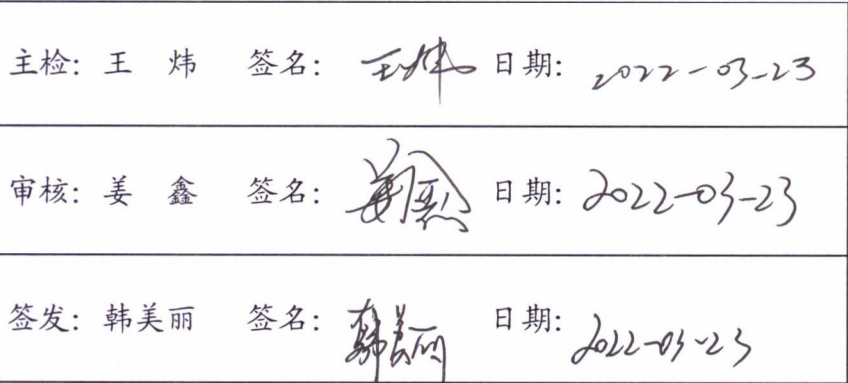 主检：王　炜　签名：王炜　日期：2022-03-23
审核：姜　鑫　签名：姜鑫　日期：2022-03-23
签发：韩美丽　签名：韩美丽　日期：2022-03-23